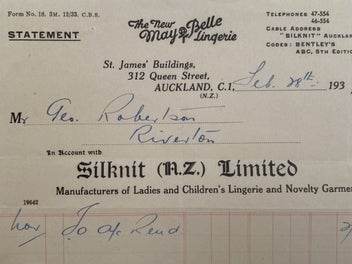 Form No. 18. 3M. 12/33. C.B.S.
STATEMENT
The New
May Belle
Lingerie
TELEPHONES 47-554
46-554
CABLE ADDRESS
"SILKNIT" AUCKLAN
CODES: BENTLEY'S
ABC, 5TH EDITION
St. James' Buildings,
312 Queen Street,
AUCKLAND, C.1, Feb. 28th. 193
(N.Z.)
M Geo. Robertson
Riverton
In Account with
Silknit (N.Z.) Limited
Manufacturers of Ladies and Children's Lingerie and Novelty Garmen
19642
Nov To a/c Rend